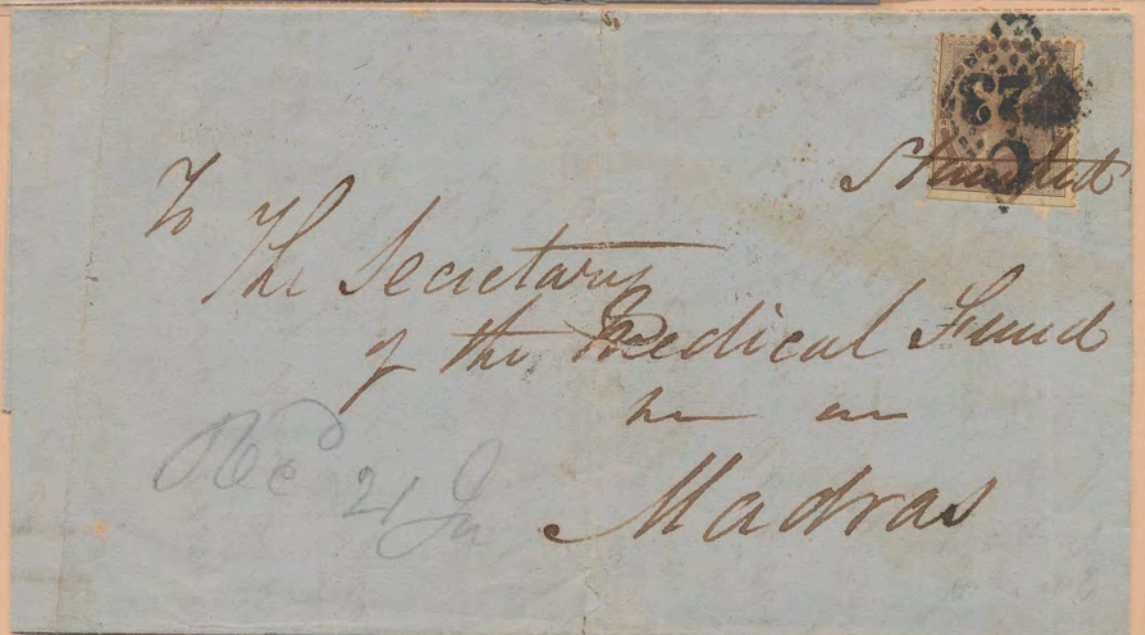 Stamped
To
The Secretary
of the Medical Fund
Madras
Rec^d 21 Ja
C
23